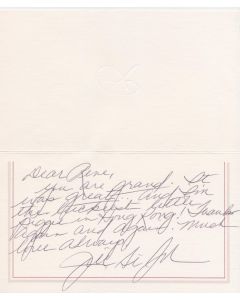 Dear Rene,
You are grand. It
was great! And I'm
the luckiest little
bigger in Hong Kong! Thanks
again and again. Much
love always
Jill St. John